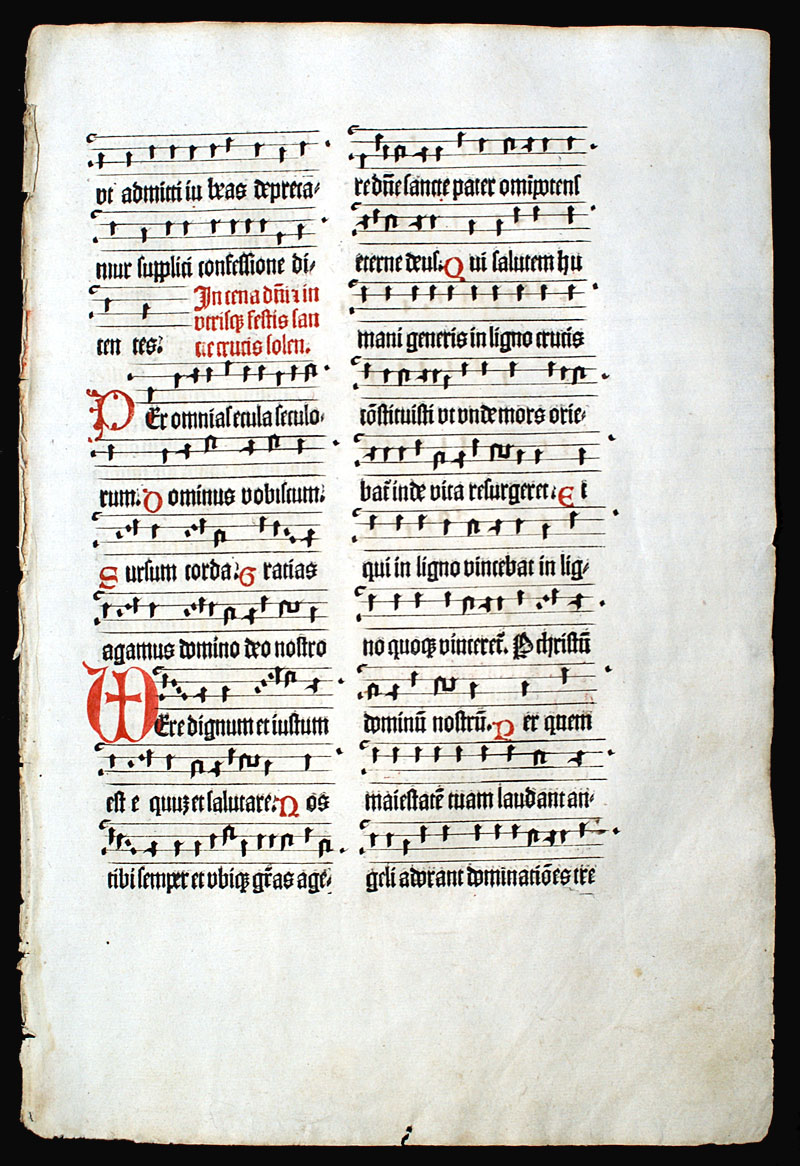 vt admitti iu beas depreca⸗
mur supplici confessione di⸗
cen tes:
In cena dñi ⁊ in
vtrisqꝫ festis san
cte crucis solen.
PEr omnia secula seculo⸗
rum. Dominus vobiscum.
Sursum corda. Gratias
agamus domino deo nostro
VEre dignum et iustum
est e quuꝫ et salutare. Nos
tibi semper et vbiqꝫ gr̃as age⸗
re dñe sancte pater om̄ipotens
eterne deus. Qui salutem hu
mani generis in ligno crucis
cōstituisti vt vnde mors orie⸗
bat̃ inde vita resurgeret. Et
qui in ligno vincebat in lig⸗
no quoqꝫ vinceret̃. P christū
dominū nostrū. Per quem
maiestatē tuam laudant an⸗
geli adorant dominatiōes tre